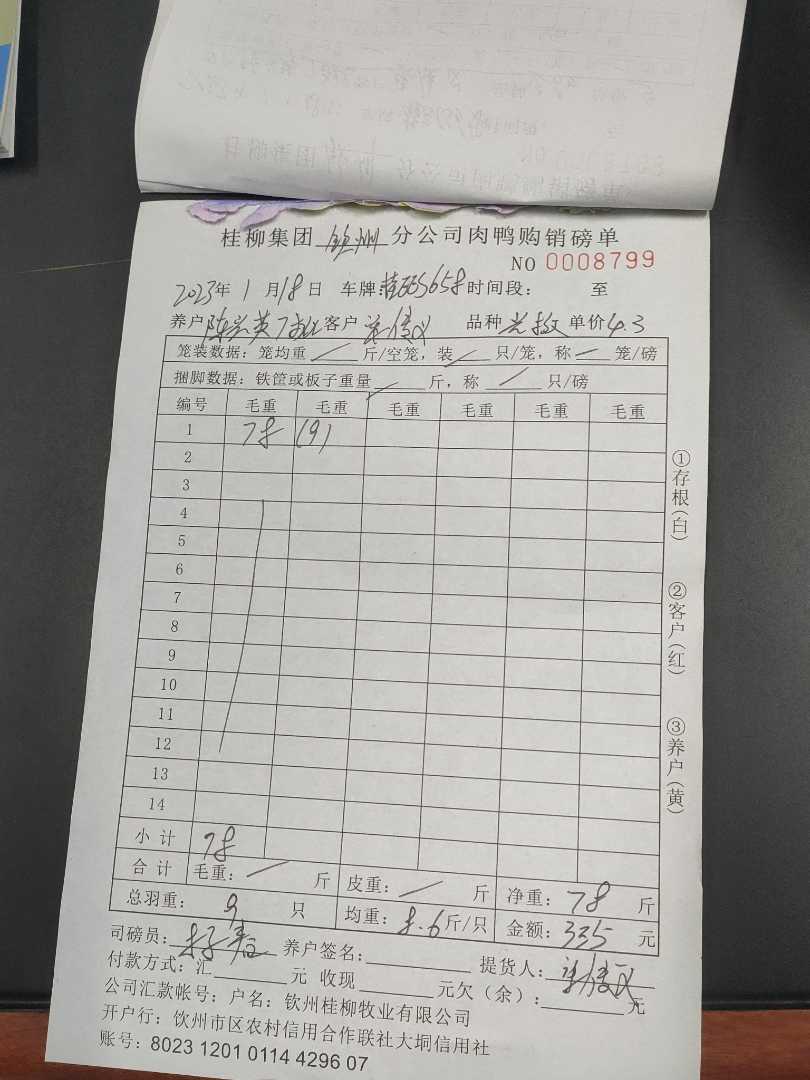 桂柳集团 钦州 分公司肉鸭购销磅单
NO 0008799
2023年 1 月 18 日 车牌: 时间段: 至
养户 客户 品种 单价 4.3
笼装数据: 笼均重 / 斤/空笼, 装 / 只/笼, 称 / 笼/磅
捆脚数据: 铁筐或板子重量 / 斤, 称 / 只/磅
编号 毛重 毛重 毛重 毛重 毛重 毛重
1 78 (9)
2
3
4
5
6
7
8
9
10
11
12
13
14
小 计 78
合 计 毛重: / 斤 皮重: / 斤 净重: 78 斤
总羽重: 9 只 均重: 8.6 斤/只 金额: 335 元
司磅员: 养户签名: 提货人:
付款方式: 汇 元 收现 元欠(余): 元
公司汇款帐号: 户名: 钦州桂柳牧业有限公司
开户行: 钦州市区农村信用合作联社大垌信用社
账号: 8023 1201 0114 4296 07
①存根(白)
②客户(红)
③养户(黄)